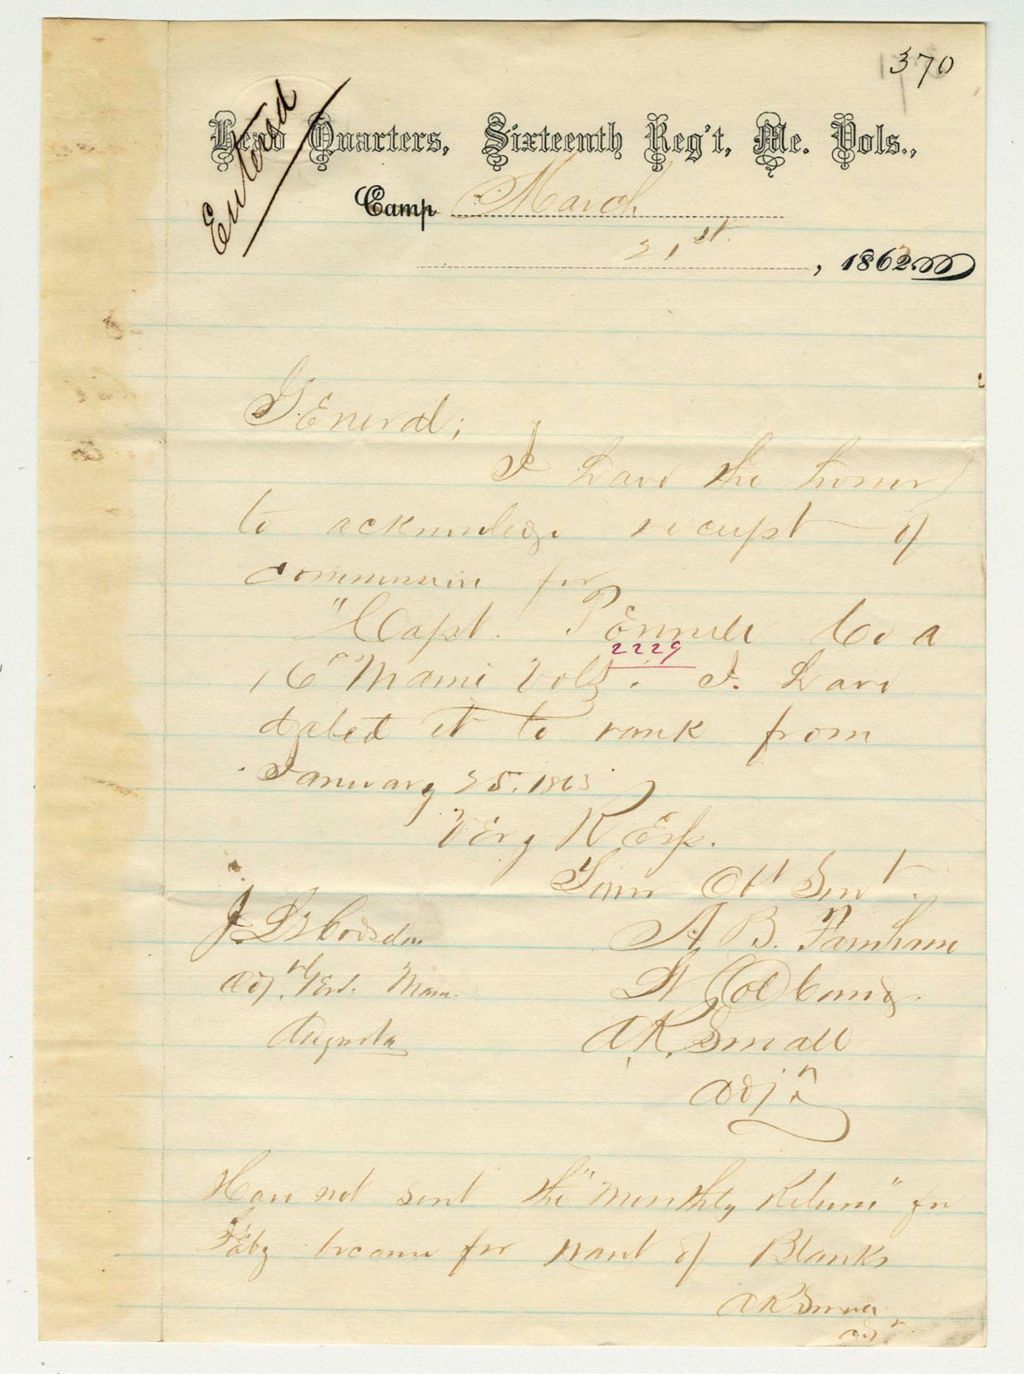 370
Entered
Head Quarters, Sixteenth Reg't, Me. Vols.,
Camp March
21st, 1863
General;
I have the honor
to acknowledge receipt of
commission for
"Capt. Pennell Co A
16" Maine Vols. I have
2229
dated it to rank from
January 25, 1863
Very R Esp.
Your Obt Servt.
J. L. Hodsdon
A. B. Farnham
Adjt Genl. Maine
Lt Col Comd'g.
Augusta
A. R. Small
Adj't
Have not sent the "Monthly Return" for
Feby because for want of Blanks
A R Small
Adjt